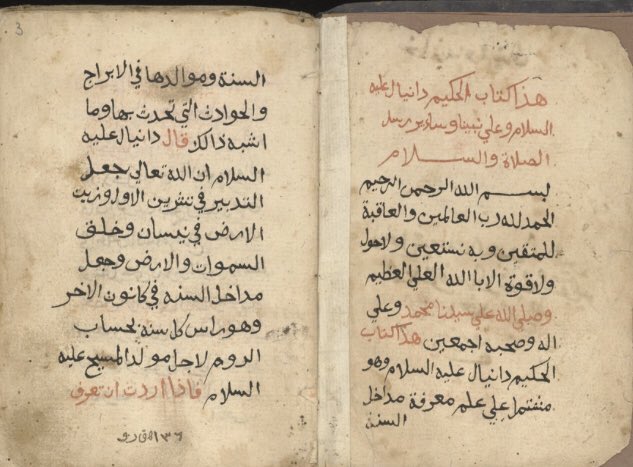 هذا كتاب الحكيم دانيال عليه
السلام وعلي نبينا وساير رسل
الصلاة والســـلام
بســم الله الرحمن الرحيم
الحمد لله رب العالمين والعاقبة
للمتقين وبه نستعين ولاحول
ولاقوة الابا الله العلي العظيم
وصلي الله علي سيدنا محمد وعلي
اله وصحبه اجمعين هذا كتاب
الحكيم دانيال عليه السلام وهو
علي علم معرفة مداخل
السنة
3
السنة وموالدها في الابراج
والحوادث التي تحدث بها وما
اشبه ذالك قال دانيال عليه
السلام ان الله تعالي جعل
التدبير في تشرين الاول وزيت
الارض في نيسان وخلق
السموات والارض وجعل
مداخل السنه في كانون الاخر
وهو راس كل سنه بحساب
الروم لاجل مولد المسيح عليه
السلام فاذا اردت ان تعرف